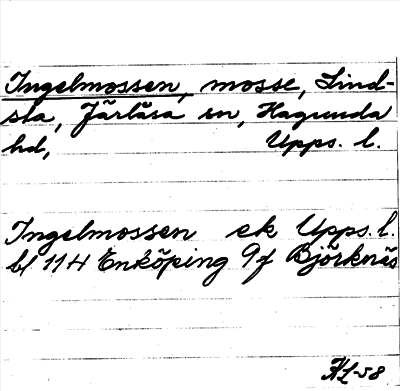 Ingelmossen, mosse, Lind-
sta, Järlåsa sn, Hagunda
hd, Upps. l.
Ingelmossen ek Upps. l.
bl 114 Enköping 9f Björknäs
HL-58